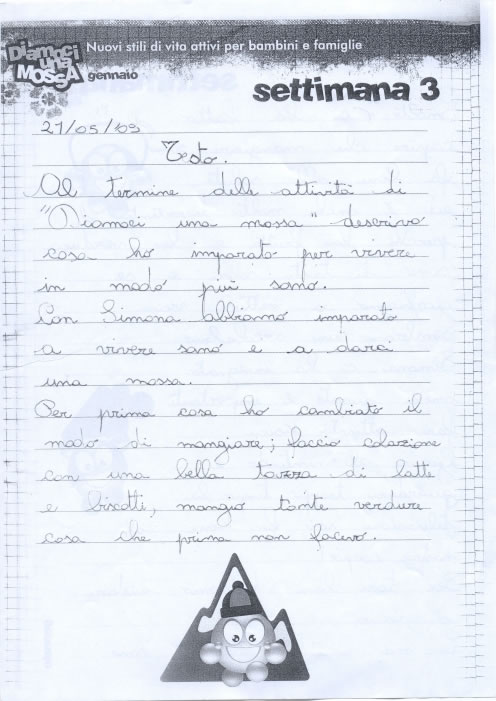 Diamoci
una
Mossa
Nuovi stili di vita attivi per bambini e famiglie
gennaio
settimana 3
21/05/09
Testo.
Al termine delle attività di
"Diamoci una mossa" descrivo
cosa ho imparato per vivere
in modo più sano.
Con Simona abbiamo imparato
a vivere sano e a darci
una mossa.
Per prima cosa ho cambiato il
modo di mangiare; faccio colazione
con una bella tazza di latte
e biscotti, mangio tante verdure
cosa che prima non facevo.